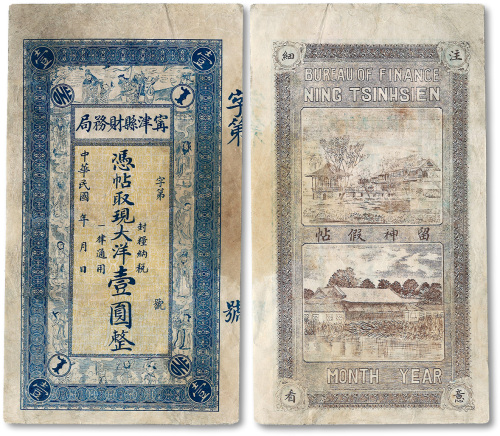 壹
壹
ONE
1
甯津縣財務局
字第 號
封糧納稅
通用
憑帖取現大洋壹圓整
中華民國 年 月 日
1
ONE
壹
壹
字第 號
注
細
BUREAU OF FINANCE
NING TSINHSIEN
留神假帖
MONTH YEAR
意
看